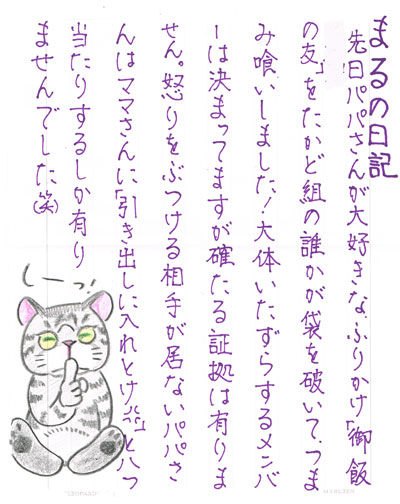 まるの日記
先日パパさんが大好きな、ふりかけ「御飯
の友」をたかど組の誰かが袋を破いて、つま
み喰いしました!大体いたずらするメンバ
ーは決まってますが確たる証拠は有りま
せん。怒りをぶつける相手が居ないパパさ
んはママさんに「引き出しに入れとけ💢」と八つ
当たりするしか有り
ませんでした(笑)
しーっ!